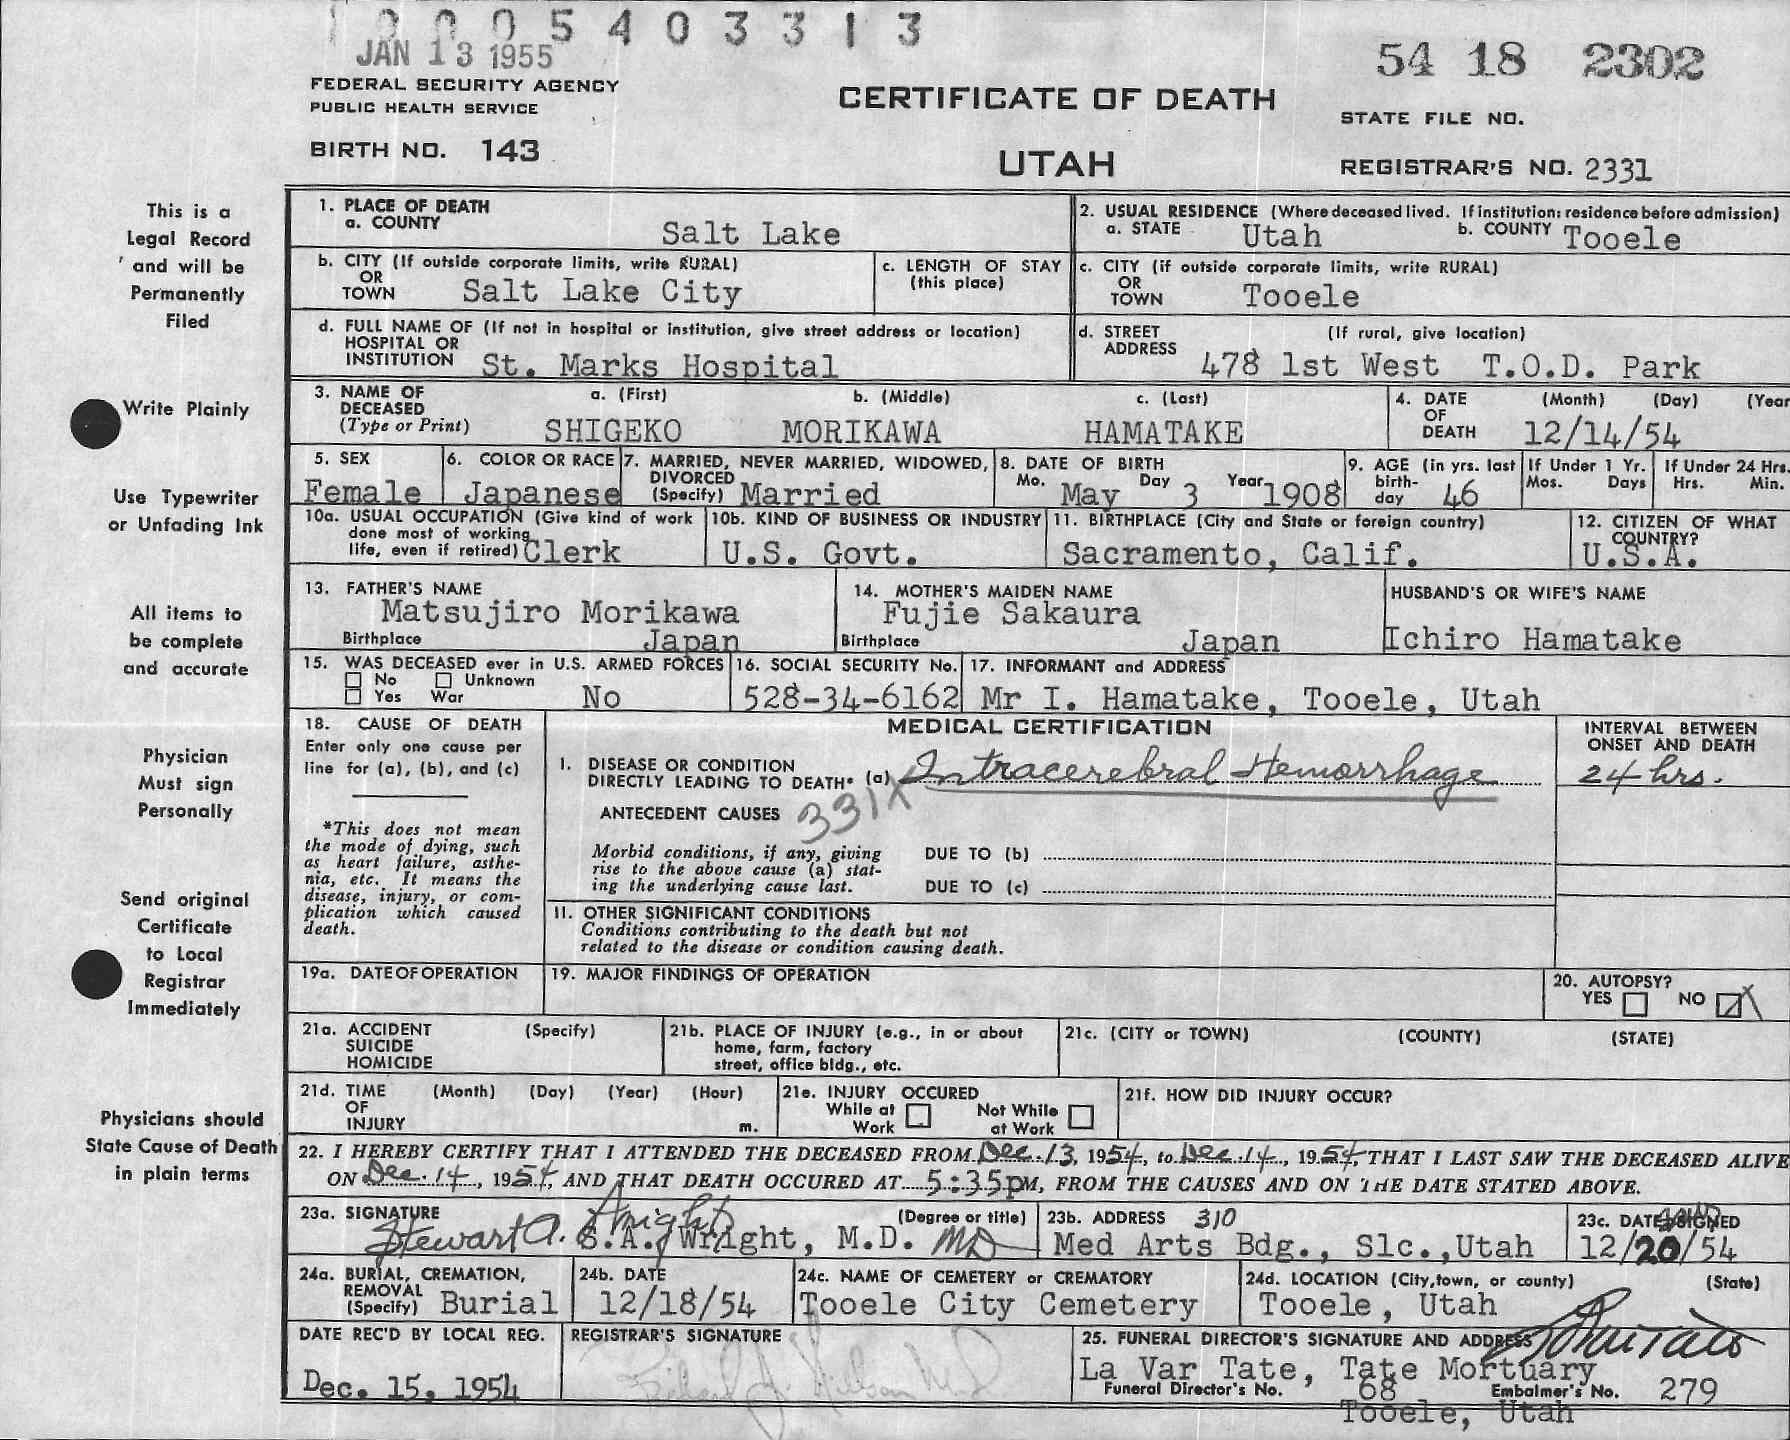 1 0 0 0 5 4 0 3 3 1 3
JAN 13 1955
54 18 2302
FEDERAL SECURITY AGENCY
PUBLIC HEALTH SERVICE
CERTIFICATE OF DEATH
STATE FILE NO.
BIRTH NO. 143
UTAH
REGISTRAR'S NO. 2331
This is a
Legal Record
and will be
Permanently
Filed
Write Plainly
Use Typewriter
or Unfading Ink
All items to
be complete
and accurate
Physician
Must sign
Personally
Send original
Certificate
to Local
Registrar
Immediately
Physicians should
State Cause of Death
in plain terms
1. PLACE OF DEATH
a. COUNTY Salt Lake
2. USUAL RESIDENCE (Where deceased lived. If institution: residence before admission)
a. STATE Utah b. COUNTY Tooele
b. CITY (If outside corporate limits, write RURAL)
OR
TOWN Salt Lake City
c. LENGTH OF STAY
(this place)
c. CITY (if outside corporate limits, write RURAL)
OR
TOWN Tooele
d. FULL NAME OF (If not in hospital or institution, give street address or location)
HOSPITAL OR
INSTITUTION St. Marks Hospital
d. STREET (If rural, give location)
ADDRESS 478 1st West T.O.D. Park
3. NAME OF a. (First) b. (Middle) c. (Last)
DECEASED
(Type or Print) SHIGEKO MORIKAWA HAMATAKE
4. DATE (Month) (Day) (Year
OF
DEATH 12/14/54
5. SEX
Female
6. COLOR OR RACE
Japanese
7. MARRIED, NEVER MARRIED, WIDOWED,
DIVORCED
(Specify) Married
8. DATE OF BIRTH
Mo. May Day 3 Year 1908
9. AGE (in yrs. last
birth-
day 46
If Under 1 Yr.
Mos. Days
If Under 24 Hrs.
Hrs. Min.
10a. USUAL OCCUPATION (Give kind of work
done most of working
life, even if retired) Clerk
10b. KIND OF BUSINESS OR INDUSTRY
U.S. Govt.
11. BIRTHPLACE (City and State or foreign country)
Sacramento, Calif.
12. CITIZEN OF WHAT
COUNTRY?
U.S.A.
13. FATHER'S NAME
Matsujiro Morikawa
Birthplace Japan
14. MOTHER'S MAIDEN NAME
Fujie Sakaura
Birthplace Japan
HUSBAND'S OR WIFE'S NAME
Ichiro Hamatake
15. WAS DECEASED ever in U.S. ARMED FORCES
No Unknown
Yes War No
16. SOCIAL SECURITY No.
528-34-6162
17. INFORMANT and ADDRESS
Mr I. Hamatake, Tooele, Utah
18. CAUSE OF DEATH
Enter only one cause per
line for (a), (b), and (c)
*This does not mean
the mode of dying, such
as heart failure, asthe-
nia, etc. It means the
disease, injury, or com-
plication which caused
death.
MEDICAL CERTIFICATION
I. DISEASE OR CONDITION
DIRECTLY LEADING TO DEATH* (a) Intracerebral Hemorrhage
ANTECEDENT CAUSES 331X
Morbid conditions, if any, giving
rise to the above cause (a) stat-
ing the underlying cause last.
DUE TO (b)
DUE TO (c)
II. OTHER SIGNIFICANT CONDITIONS
Conditions contributing to the death but not
related to the disease or condition causing death.
INTERVAL BETWEEN
ONSET AND DEATH
24 hrs.
19a. DATE OF OPERATION
19. MAJOR FINDINGS OF OPERATION
20. AUTOPSY?
YES NO X
21a. ACCIDENT (Specify)
SUICIDE
HOMICIDE
21b. PLACE OF INJURY (e.g., in or about
home, farm, factory
street, office bldg., etc.
21c. (CITY or TOWN) (COUNTY) (STATE)
21d. TIME (Month) (Day) (Year) (Hour)
OF
INJURY m.
21e. INJURY OCCURED
While at Not While
Work at Work
21f. HOW DID INJURY OCCUR?
22. I HEREBY CERTIFY THAT I ATTENDED THE DECEASED FROM Dec. 13, 1954, to Dec. 14, 1954, THAT I LAST SAW THE DECEASED ALIVE
ON Dec. 14, 1954, AND THAT DEATH OCCURED AT 5:35pM, FROM THE CAUSES AND ON THE DATE STATED ABOVE.
23a. SIGNATURE (Degree or title)
Stewart A. Wright MD
S.A. Wright, M.D.
23b. ADDRESS 310
Med Arts Bdg., Slc., Utah
23c. DATE SIGNED
12/20/54
24a. BURIAL, CREMATION,
REMOVAL
(Specify) Burial
24b. DATE
12/18/54
24c. NAME OF CEMETERY or CREMATORY
Tooele City Cemetery
24d. LOCATION (City, town, or county) (State)
Tooele, Utah
DATE REC'D BY LOCAL REG.
Dec. 15, 1954
REGISTRAR'S SIGNATURE
25. FUNERAL DIRECTOR'S SIGNATURE AND ADDRESS
La Var Tate, Tate Mortuary
Funeral Director's No. 68 Embalmer's No. 279
Tooele, Utah